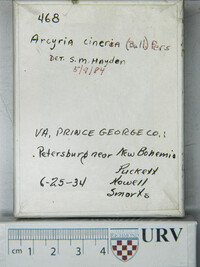 468
Arcyria cineria (Bull) Pers
Det. S.M. Hayden
5/9/84
VA, PRINCE GEORGE CO.:
Petersburg near New Bohemia
6-25-34 Puckett
Howell
Smarks
cm 1 2 3 4
URV